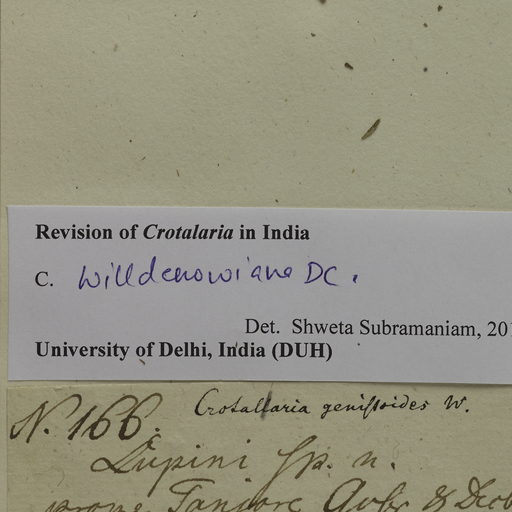 Revision of Crotalaria in India
C. Willdenowiana DC.
Det. Shweta Subramaniam, 201
University of Delhi, India (DUH)
Crotallaria genistoides W.
N. 166.
Lupini sp. n.
prope Tanjore &